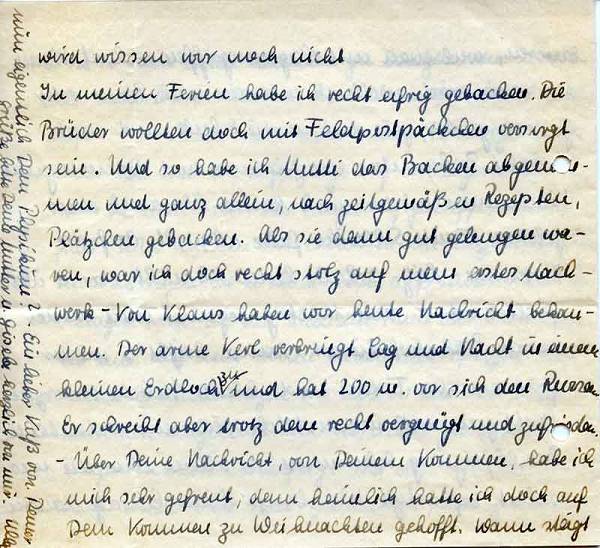 wird wissen wir noch nicht
In meinen Ferien habe ich recht eifrig gebacken. Die
Brüder wollten doch mit Feldpostpäckchen versorgt
sein. Und so habe ich Mutti das Backen abgenom-
men und ganz allein, nach zeitgemäßen Rezepten,
Plätzchen gebacken. Als sie dann gut gelungen wa-
ren, war ich doch recht stolz auf mein erstes Mach-
werk – Von Klaus haben wir heute Nachricht bekom-
men. Der arme Kerl verbringt Tag und Nacht in einem
kleinen Erdloch und hat 200 m. vor sich den Russen.
Er schreibt aber trotz dem recht vergnügt und zufrieden.
- Über Deine Nachricht, von Deinem Kommen, habe ich
mich sehr gefreut, denn heimlich hatte ich doch auf
Dein Kommen zu Weihnachten gehofft. Wann steigt
nun eigentlich Dein Physikum? - Ein lieber Kuß von Deiner
Grüße bitte Deine Mutter u. Gisela herzlich von mir.